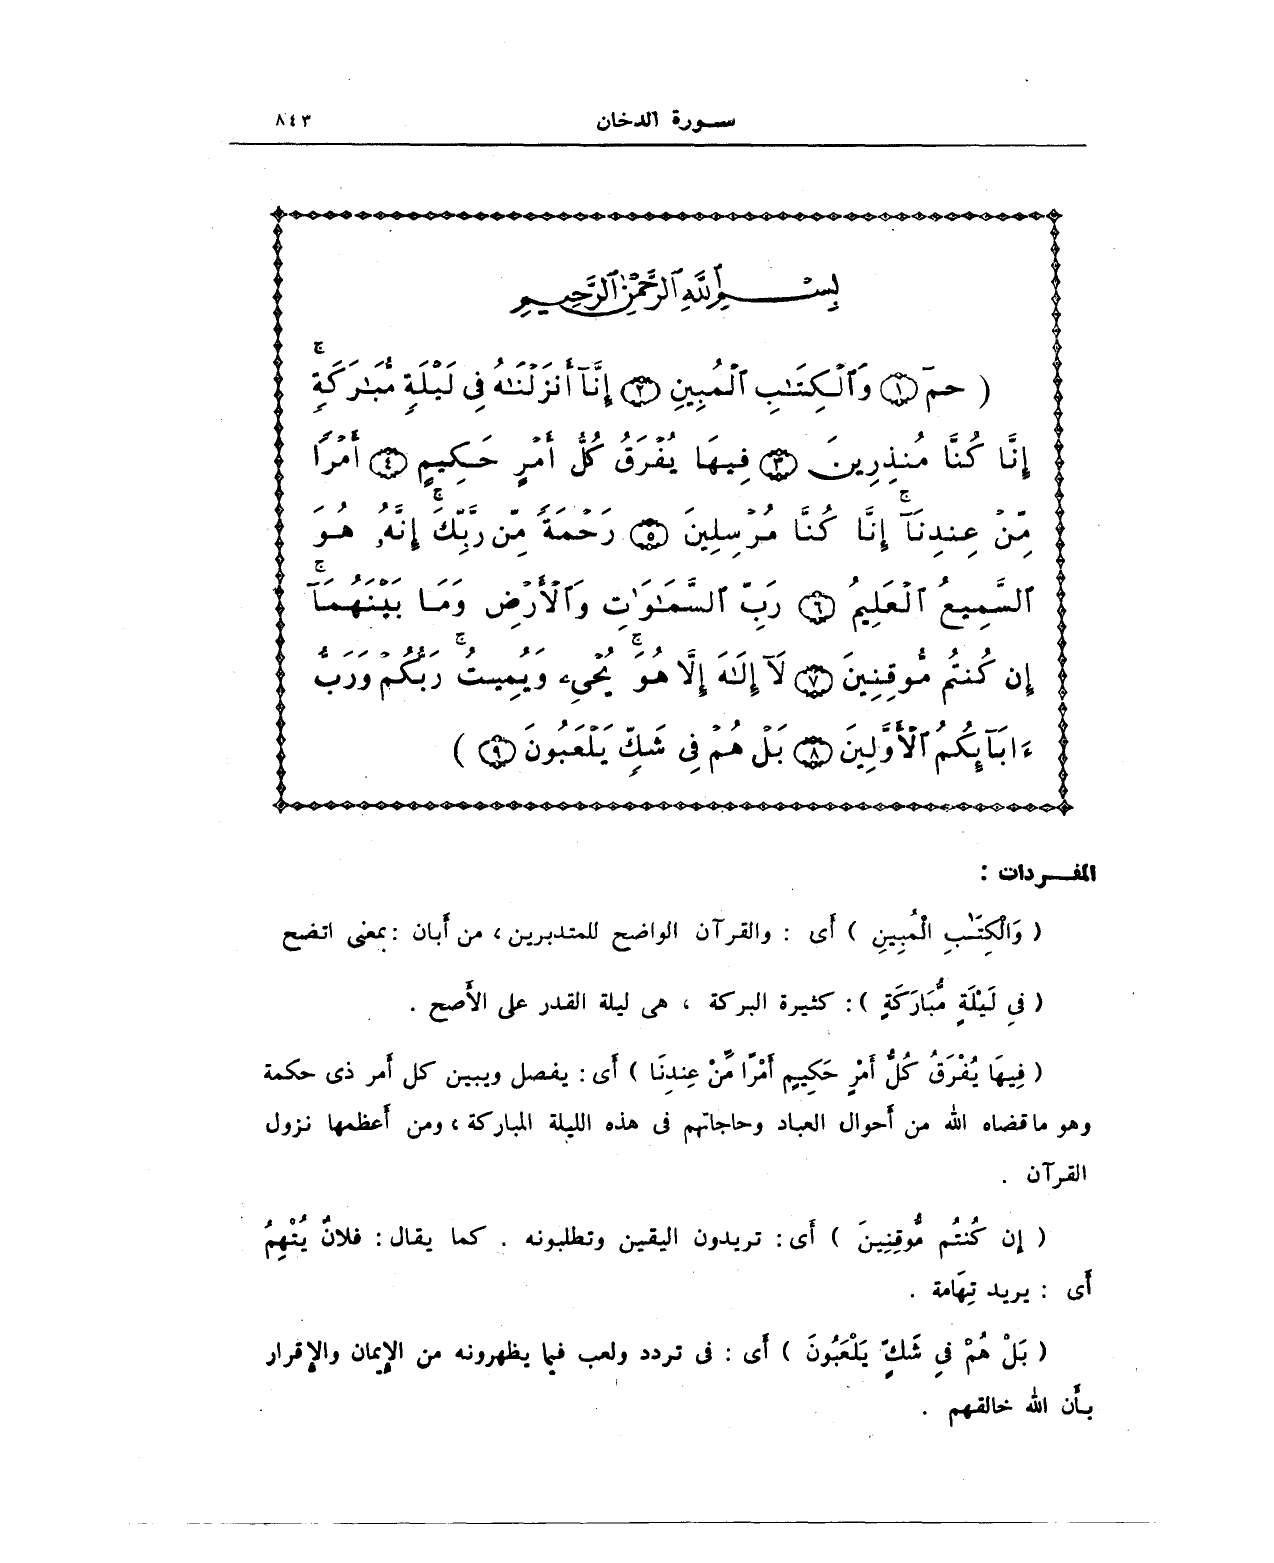 سورة الدخان ٨٤٣
بِسْمِ ٱللَّهِ ٱلرَّحْمَٰنِ ٱلرَّحِيمِ
( حمٓ ١ وَٱلْكِتَٰبِ ٱلْمُبِينِ ٢ إِنَّآ أَنزَلْنَٰهُ فِى لَيْلَةٍ مُّبَٰرَكَةٍ ۚ
إِنَّا كُنَّا مُنذِرِينَ ٣ فِيهَا يُفْرَقُ كُلُّ أَمْرٍ حَكِيمٍ ٤ أَمْرًا
مِّنْ عِندِنَآ ۚ إِنَّا كُنَّا مُرْسِلِينَ ٥ رَحْمَةً مِّن رَّبِّكَ ۚ إِنَّهُۥ هُوَ
ٱلسَّمِيعُ ٱلْعَلِيمُ ٦ رَبِّ ٱلسَّمَٰوَٰتِ وَٱلْأَرْضِ وَمَا بَيْنَهُمَآ ۚ
إِن كُنتُم مُّوقِنِينَ ٧ لَآ إِلَٰهَ إِلَّا هُوَ ۚ يُحْىِۦ وَيُمِيتُ ۚ رَبُّكُمْ وَرَبُّ
ءَابَآئِكُمُ ٱلْأَوَّلِينَ ٨ بَلْ هُمْ فِى شَكٍّ يَلْعَبُونَ ٩ )
المفردات :
( وَالْكِتَٰبِ الْمُبِينِ ) أى : والقرآن الواضح للمتدبرين ، من أبان : بمعنى اتضح
( فِى لَيْلَةٍ مُّبَارَكَةٍ ) : كثيرة البركة ، هى ليلة القدر على الأصح .
( فِيهَا يُفْرَقُ كُلُّ أَمْرٍ حَكِيمٍ أَمْرًا مِّنْ عِندِنَا ) أى : يفصل ويبين كل أمر ذى حكمة
وهو ما قضاه الله من أحوال العباد وحاجاتهم فى هذه الليلة المباركة ، ومن أعظمها نزول
القرآن .
( إِن كُنتُم مُّوقِنِينَ ) أى : تريدون اليقين وتطلبونه . كما يقال : فلانٌ يُتْهِمُ
أى : يريد تِهَامة .
( بَلْ هُمْ فِى شَكٍّ يَلْعَبُونَ ) أى : فى تردد ولعب فيما يظهرونه من الإيمان والإقرار
بأن الله خالقهم .